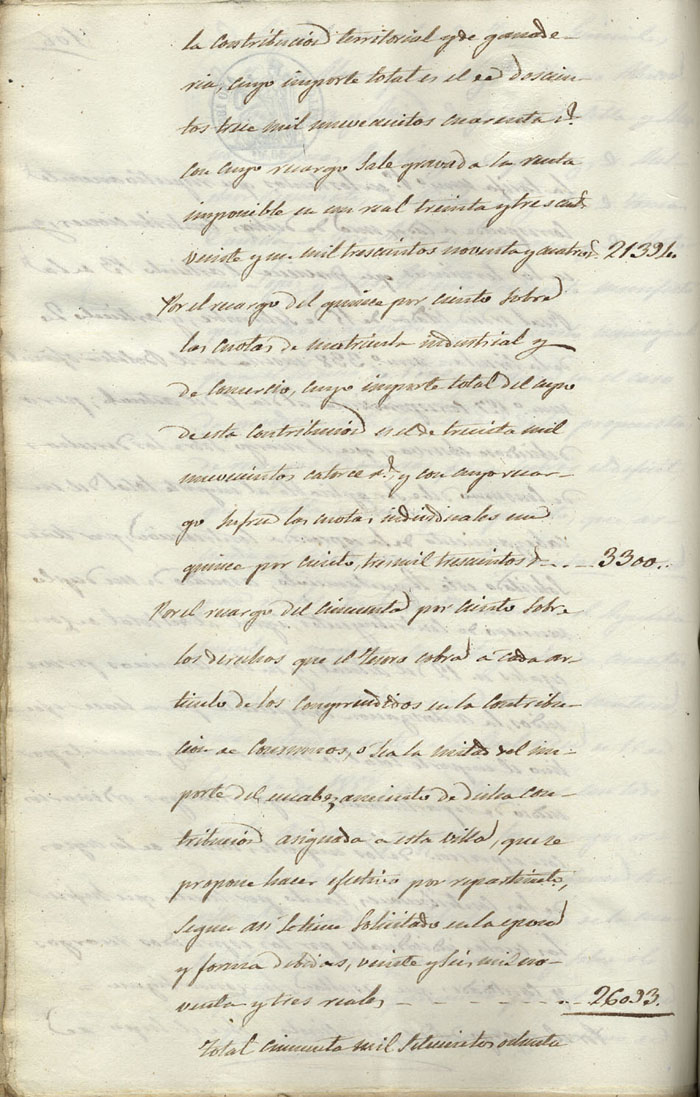 la contribucion territorial y de ganade-
ria, cuyo importe total es el de doscien-
tos trece mil nuevecientos cuarenta r.^s
con cuyo recargo sale gravada la renta
imponible en un real treinta y tres cent.^s
veinte y un mil trescientos noventa y cuatro r.^s 21394.
Por el recargo del quince por ciento sobre
las cuotas de matricula industrial y
de comercio, cuyo importe total del cupo
de esta contribucion es el de treinta mil
nuevecientos catorce r.^s y con cuyo recar-
go sufren las cuotas individuales un
quince por ciento, tres mil trescientos r. .... 3300..
Por el recargo del cincuenta por ciento sobre
los derechos que el Tesoro cobra á cada ar-
ticulo de los comprendidos en la contribu-
cion de Consumos, o sea la mitad del im-
porte del encabezamiento de dicha con-
tribucion asignada a esta villa, que se
propone hacer efectivo por repartim.^to,
segun asi se tiene solicitado en la epoca
y forma debidas, veinte y seis mil no-
venta y tres reales - - - - - .. 26093.
Total cincuenta mil setecientos ochenta